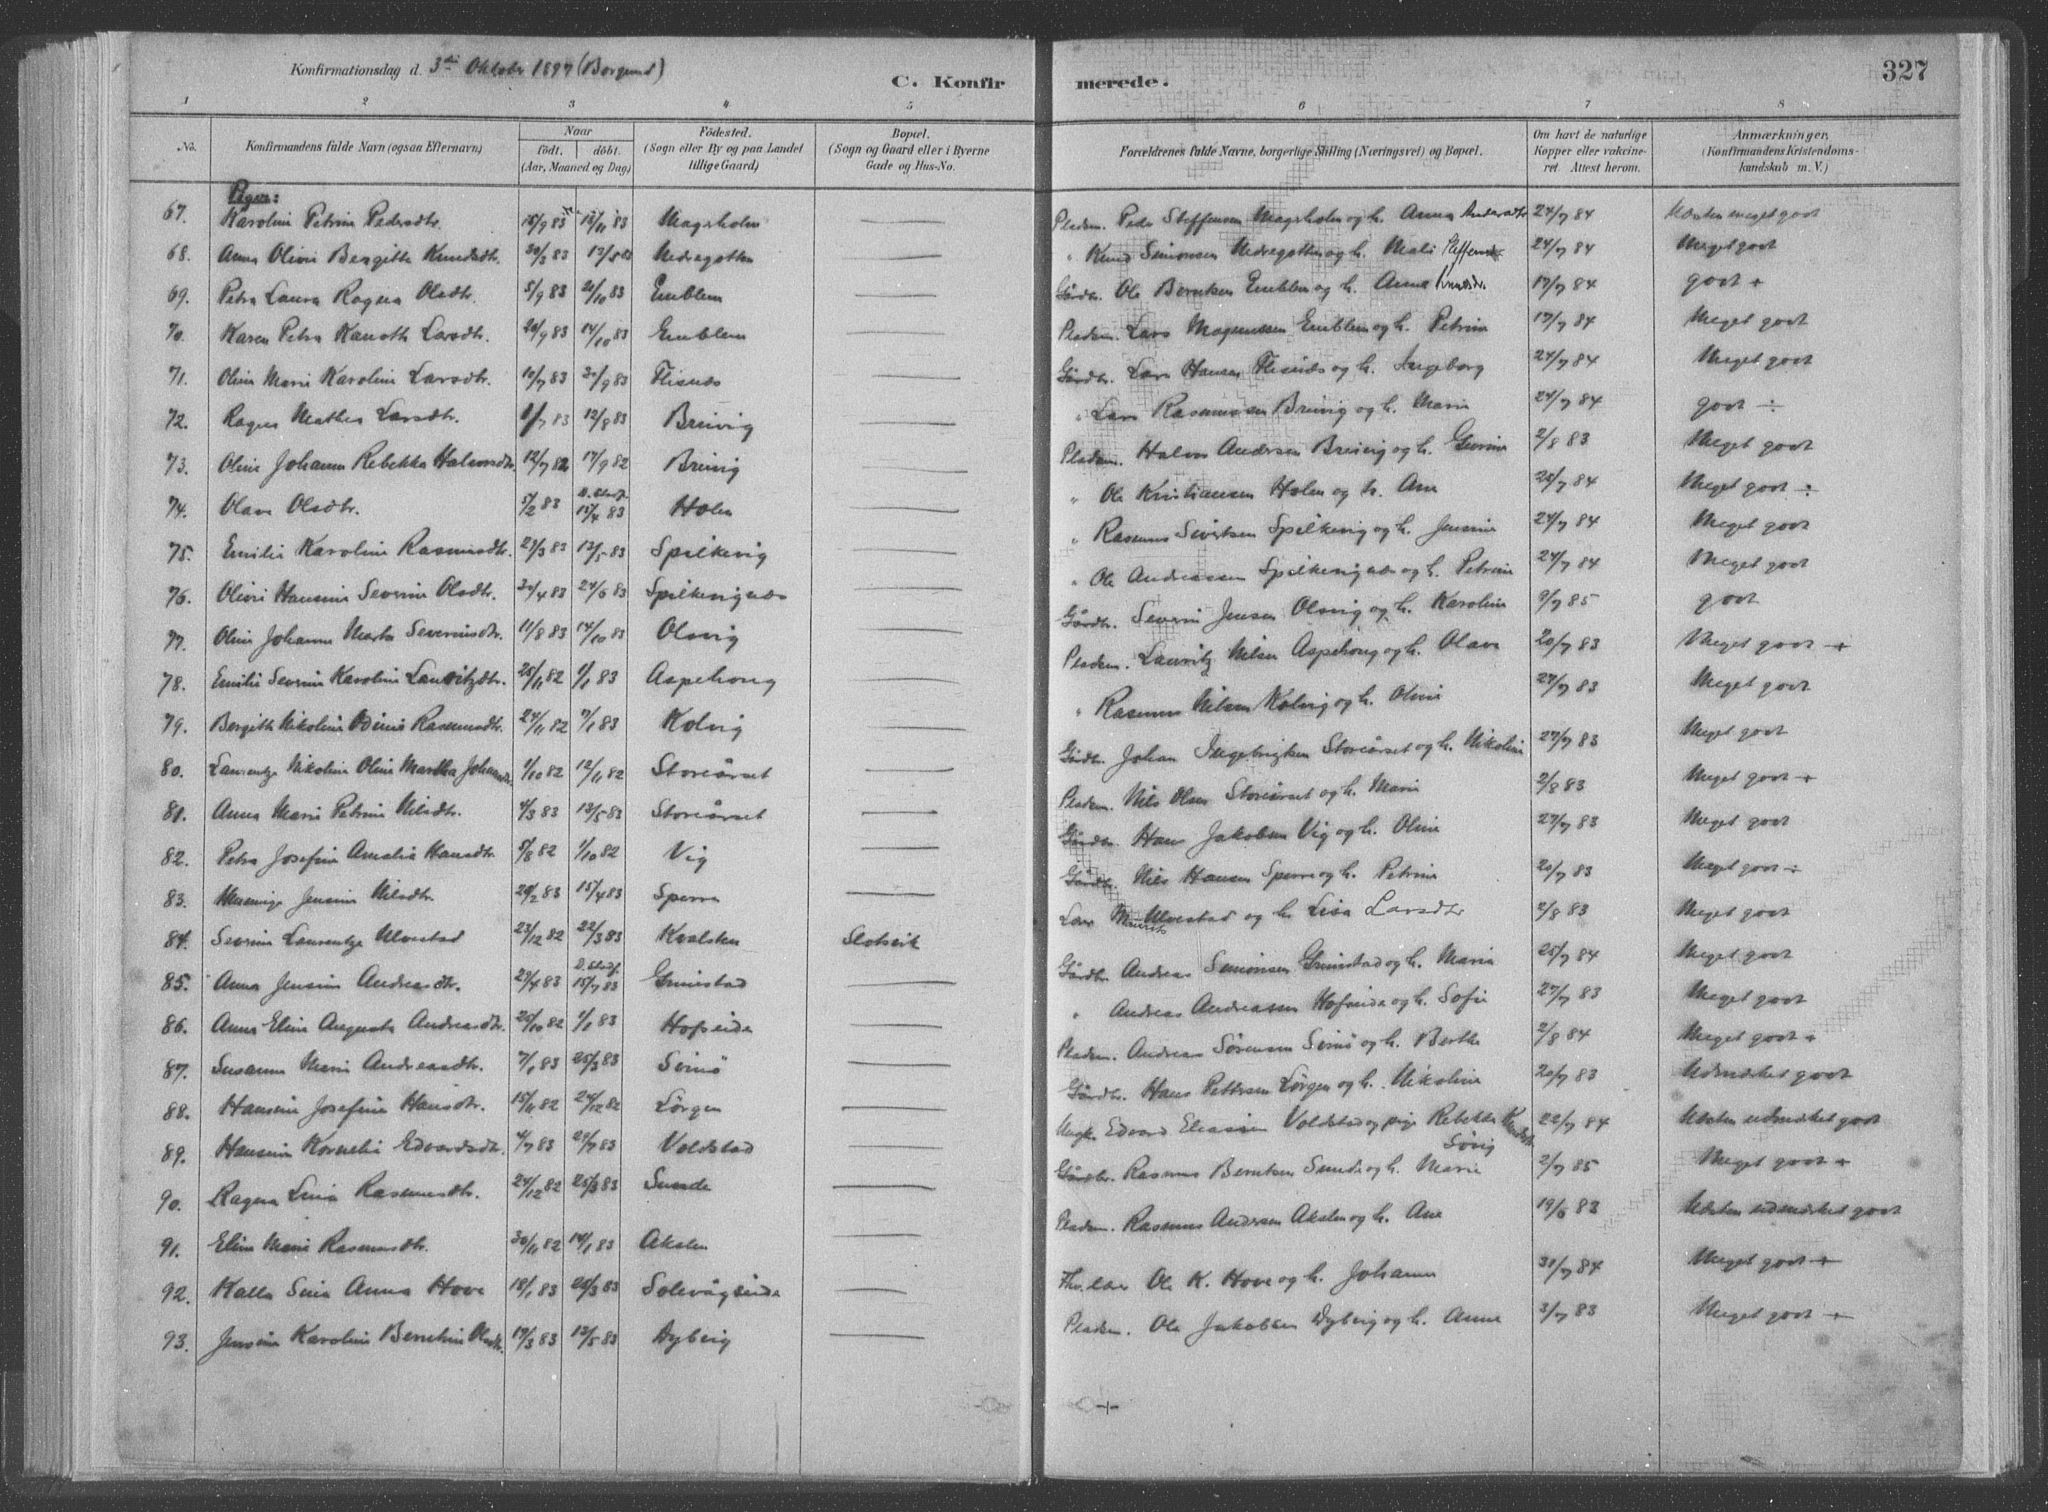 Konfirmationsdag d. 3die Oktober 1897 (Borgund)
C. Konfirmerede.
327
1 2 3 4 5 6 7 8
No. Konfirmandens fulde Navn (ogsaa Efternavn) Naar födt. döbt. (Aar, Maaned og Dag) Födested. (Sogn eller By og paa Landet tillige Gaard) Bopæl. (Sogn og Gaard eller i Byerne Gade og Hus-No. Forældrenes fulde Navne, borgerlige Stilling (Næringsvei) og Bopæl. Om havt de naturlige Kopper eller vaccineret Attest herom. Anmærkninger, (Konfirmandens Kristendomskundskab m. V.)
Piger:
67. Karoline Petrine Pedersdtr. 83 83 Magerholm — Pladsm. Peder Steffensen Magerholm og h. Anna 24/7 84 Næsten meget godt
68. Anna Olivi Bergitte Knudsdtr. 30/3 83 13/5 83 Nedregotten — " Knud Simonsen Nedregotten og h. Mali Steffensd. 24/7 84 Meget godt
69. Petra Laura Ragna Olsdtr. 5/9 83 20/10 83 Emblem — Gårdbr. Ole Berntsen Emblem og h. Anne Knudsdr. 17/7 84 godt +
70. Karen Petra Larsdtr. 20/9 83 14/10 83 Emblem — Pladsm. Lars Magnussen Emblem og h. Petrine 17/7 84 Meget godt
71. Oline Marie Karoline Larsdtr. 10/7 83 30/9 83 Flisnæs — Gårdbr. Lars Hansen Flisnæs og h. Ingeborg 24/7 84 Meget godt
72. Ragna Mathea Larsdtr. 1/7 83 12/8 83 Breivig — " Lars Rasmussen Breivig og h. Marie 24/7 84 godt ÷
73. Oline Johanne Rebekka Halvorsdtr. 12/7 82 17/9 82 Breivig — Pladsm. Halvor Andersen Breivig og h. Gurine 2/8 83 Meget godt
74. Olave Olsdtr. 5/2 83 15/4 83 Holen — " Ole Kristiansen Holen og h. Ane 84 Meget godt ÷
75. Emilie Karoline Rasmusdtr. 23/3 83 13/5 83 Spilkevig — " Rasmus Sivertsen Spilkevig og h. Jensine 24/7 84 Meget godt
76. Olivi Hansine Severine Olsdtr. 30/4 83 24/6 83 Spilkevignæs — " Ole Andreassen Spilkevignæs og h. Petrine 24/7 84 Meget godt
77. Oline Johanne Marta Severinsdtr. 11/8 83 14/10 83 Olsvig — Gårdbr. Severin Jensen Olsvig og h. Karoline 9/7 85 godt
78. Emilie Severine Karoline Lauritzdtr. 28/11 82 1/1 83 Aspehoug — Pladsm. Lauritz Nilsen Aspehoug og h. Olave 20/7 83 Meget godt +
79. Bergitte Nikoline Rasmusdtr. 24/11 82 7/1 83 Kolvig — " Rasmus Nilsen Kolvig og h. Oline 27/7 83 Meget godt
80. Laurentze Nikoline Oline Martha Johansdtr. 1/10 82 12/11 82 Storeårset — Gårdbr. Johan Ingebrigtsen Storeårset og h. Nikoline 27/7 83 Meget godt
81. Anna Marie Petrine Nilsdtr. 4/3 83 13/5 83 Storeårset — Pladsm. Nils Olsen Storeårset og h. Marie 2/8 83 Meget godt +
82. Petra Josefine Amalia Hansdtr. 5/8 82 1/10 82 Vig — Gårdbr. Hans Jakobsen Vig og h. Oline 27/7 83 Meget godt
83. Jensine Nilsdtr. 20/2 83 15/4 83 Sperre — Gårdbr. Nils Hansen Sperre og h. Petrine 20/7 83 Meget godt ÷
84. Severine Laurentze Ulvestad 23/12 82 22/3 83 Kvalsten Slotsvik Lars Ulvestad og h. Lisa Larsdtr 2/8 83 Meget godt
85. Anna Jensine Andreasdtr. 29/4 83 15/7 83 Grimstad — Gårdbr. Andreas Simonsen Grimstad og h. Maria 84 Meget godt
86. Anna Eline Augusta Andreasdtr. 20/10 82 1/1 83 Hofseide — " Andreas Andreassen Hofseide og h. Sofie 27/7 83 Meget godt
87. Susanne Marie Andreasdtr. 7/1 83 25/3 83 — Pladsm. Andreas Sørensen og h. Berthe 2/8 84 Meget godt +
88. Hansine Josefine Hansdtr. 15/11 82 24/12 82 Lørgen — Gårdbr. Hans Pettersen Lørgen og h. Nikoline 20/7 83 Udmærket godt
89. Hansine Kornelie Edvardsdtr. 4/7 83 29/7 83 Voldstad — Ungk. Edvard Eliassen Voldstad og pige Rebekka Knudsdtr. 22/7 84 Næsten udmærket godt
90. Ragna Lina Rasmusdtr. 24/12 82 25/3 83 Sunde — Gårdbr. Rasmus Berntsen Sunde og h. Marie 2/7 85 Meget godt +
91. Eline Marie Rasmusdtr. 30/11 82 14/1 83 Akslen — Pladsm. Rasmus Andersen Akslen og h. Ane 19/6 83 Næsten udmærket godt
92. Kalla Sina Anna Hove 18/1 83 83 Solevågseide — Ole K. Hove og h. Johanne 31/7 84 Meget godt +
93. Jensine Karoline Berntine Olsdtr. 17/3 83 13/5 83 Dybvig — Pladsm. Ole Jakobsen Dybvig og h. Anne 3/7 83 Meget godt +